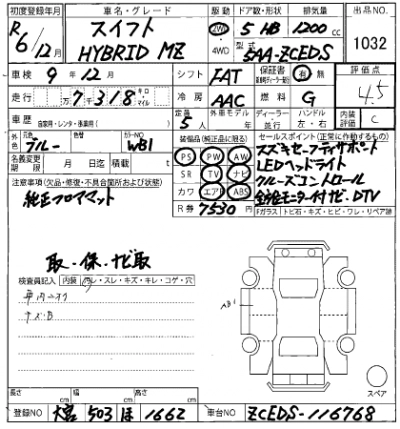 初度登録年月 車名・グレード 駆動 ドア数・形状 排気量 出品NO
R6/12月 スイフト HYBRID MZ 2WD 4WD 5 HB 1200cc 1032
型式 5AA-ZCEDS
車検 9年12月 シフト FAT 保証書 有 無 評価点 4.5
走行 7,318 キロ マイル 冷房 AAC 燃料 G
車歴 自家用・レンタ・事業用 定員 5人 外車モデル年 ディーラー 並行 ハンドル 左・右 内装評価 C
外色 元色 ブルー 色替 カラーNO WB1
装備品（純正品に限る） セールスポイント（正常に作動するもの）
PS PW AW スズキセーフティサポート
名義変更期限 月 日迄 積載 t SR TV ナビ LEDヘッドライト
注意事項（欠品・修復・不具合箇所および状態） カワ エアB ABS クルーズコントロール
純正フロアマット R券 7530 全方位モニター付ナビ・DTV
Fガラス トビ石・キズ・ヒビ・ワレ・リペア跡
取・保・ナビ取
検査員記入 内装 ヨゴレ・スレ・キズ・キレ・コゲ・穴
車内ヨゴレ
キズB
A B1
スペア
長さ cm 幅 cm 高さ cm
登録NO 大宮 503 ほ 1662 車台NO ZCEDS-116768